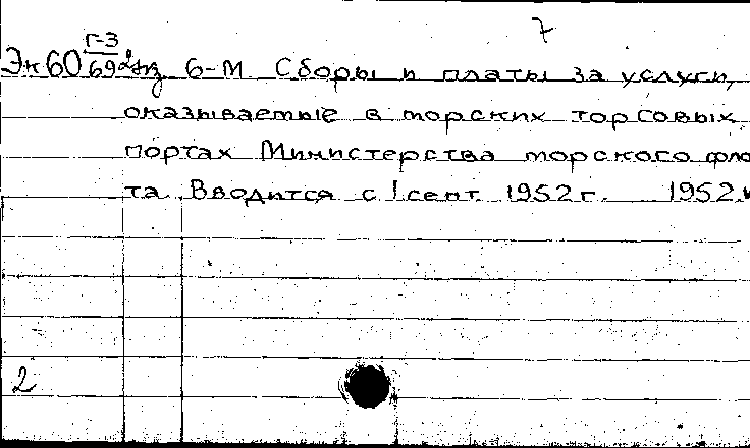 7
Г-3
Эк60 69 6-М. Сборы и платы за услуги,
оказываемые в морских торговых
портах Министерства морского фло
та. Вводится с 1 сент. 1952 г. 1952.
2